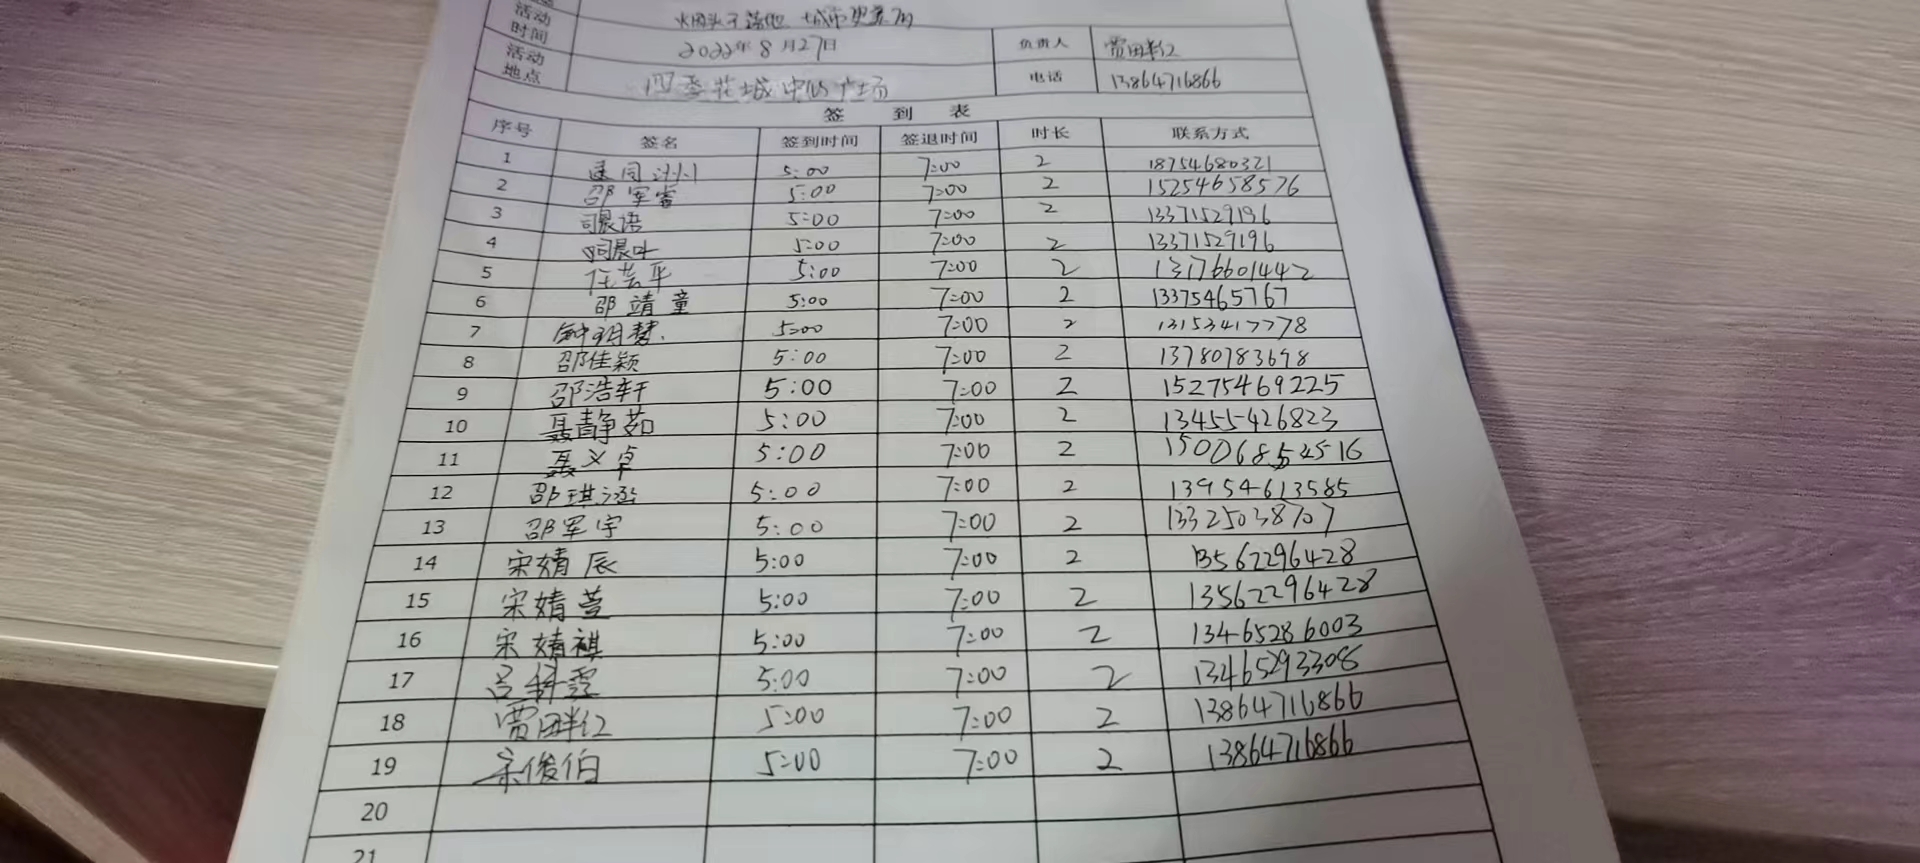 活动 烟头不落地 城市更美丽
时间 2022年8月27日 负责人 贾田畔红
活动
地点 四季花城中心广场 电话 13864716866
签 到 表
序号 签名 签到时间 签退时间 时长 联系方式
1 5:00 7:00 2 18754680321
2 邵军睿 5:00 7:00 2 15254658576
3 司晨语 5:00 7:00 2 13371529196
4 司晨叶 5:00 7:00 2 13371529196
5 任芸平 5:00 7:00 2 13176601442
6 邵靖童 5:00 7:00 2 13375465767
7 钟玥慧 5:00 7:00 2 13153417778
8 邵佳颖 5:00 7:00 2 13780783698
9 邵浩轩 5:00 7:00 2 15275469225
10 聂静茹 5:00 7:00 2 13455426823
11 聂义卓 5:00 7:00 2
12 邵琪涵 5:00 7:00 2 13954613585
13 邵军宇 5:00 7:00 2 13325038707
14 宋婧辰 5:00 7:00 2 13562296428
15 宋婧萱 5:00 7:00 2 13562296428
16 宋婧祺 5:00 7:00 2 13465286003
17 吕科霆 5:00 7:00 2 13465293308
18 贾田畔红 5:00 7:00 2 13864716866
19 宋俊伯 5:00 7:00 2 13864716866
20
21